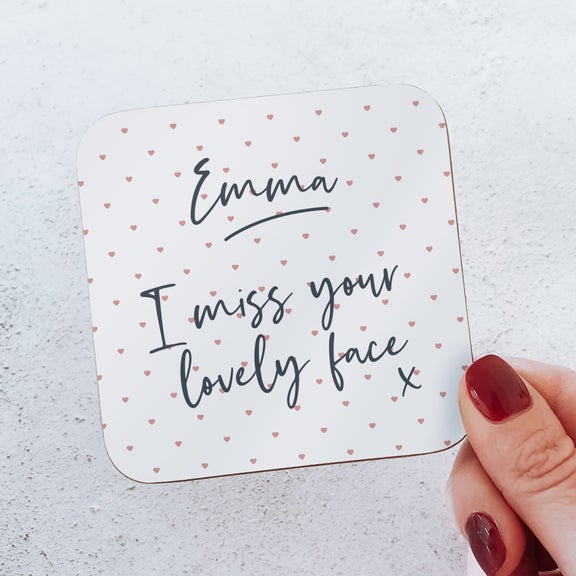 Emma
I miss your
lovely face
x